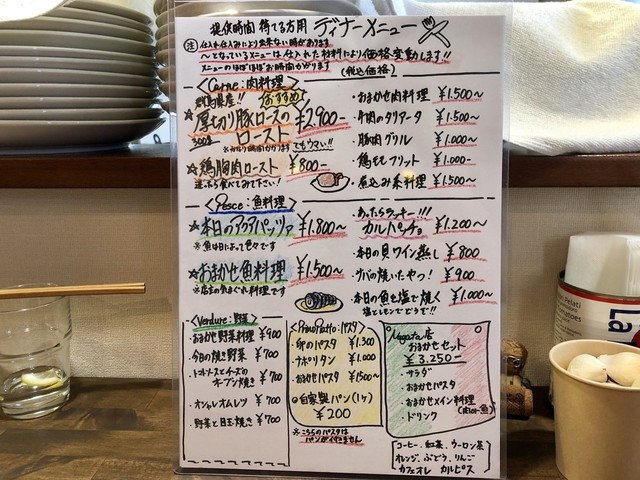 提供時間 待てる方用 ディナーメニュー
注 仕入れ仕込みにより出来ない時があります
〜となっているメニューは仕入れた材料により価格変動します!!
メニューのほぼほぼお時間かかります (税込価格)
<Carne:肉料理>
群馬県産!! おすすめ
☆厚切り豚ロースのロースト ¥2,900-
300g ※かなり時間かかります でもウマい!!
☆鶏胸肉ロースト ¥800-
迷ったら食べてみて下さい!
・おまかせ肉料理 ¥1.500〜
・牛肉のタリアータ ¥1.500〜
・豚肉グリル ¥1.000〜
・鶏ももフリット ¥1.000-
・煮込み系料理 ¥1.500〜
<Pesce:魚料理>
☆本日のアクアパッツァ ¥1.800〜
※魚は日よって色々です
☆おまかせ魚料理 ¥1.500〜
※店主の気まぐれ料理です
・あったらラッキー!!!
カルパッチョ ¥1.200〜
・本日の貝ワイン蒸し ¥800
・サバの焼いたやつ! ¥900
・本日の魚を塩で焼く ¥1.000〜
塩とレモンでどうぞ!!
<Verdure:野菜>
・おまかせ野菜料理 ¥900
・今日の焼き野菜 ¥700
・トマトナスとチーズのオーブン焼き ¥700
・オシャレオムレツ ¥700
・野菜と目玉焼き ¥700
<Primo Piatto:パスタ>
・卵のパスタ ¥1.300
・ナポリタン ¥1.000
・おまかせパスタ ¥1500〜
◎自家製パン(1ケ)
¥200
※こちらのパスタは
パンが付きません
Nagata店
おまかせセット
¥3.250-
・サラダ
・おまかせパスタ
・おまかせメイン料理
(肉or魚)
・ドリンク
コーヒー、紅茶、ウーロン茶
オレンジ、ぶどう、りんご
カフェオレ カルピス
Pelati